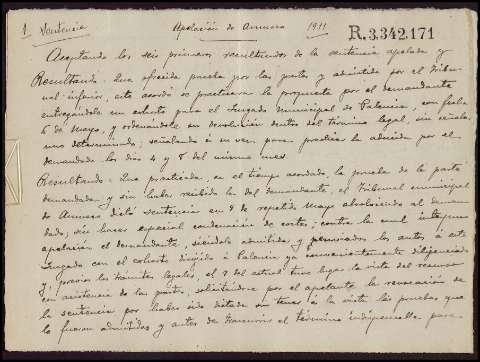 1 Sentencia Apelación de Amurrio 1911 R.3.342.171
Aceptando los seis primeros resultandos de la sentencia apelada y
Resultando: Que ofrecida prueba por las partes y admitida por el Tribu-
nal inferior, este acordó se practicara la propuesta por el demandante
entregándole un exhorto para el Juzgado municipal de Palencia, con fecha
6 de Mayo, y ordenándole su devolución dentro del término legal, sin señalar
uno determinado; señalando á su vez para practicar la aducida por el
demandado los días 4 y 8 del mismo mes
Resultando: Que practicada, en el tiempo acordado, la prueba de la parte
demandada y sin haber recibido la del demandante, el Tribunal municipal
de Amurrio dictó sentencia en 9 de repetido Mayo absolviendo al deman-
dado, sin hacer especial condenación de costas; contra la cual interpuso
apelación el demandante, siéndole admitida y remesados los autos á este
Juzgado con el exhorto dirigido á Palencia ya convenientemente diligenciado
y, previos los trámites legales, el 7 del actual tuvo lugar la vista del recurso
con asistencia de las partes, solicitándose por el apelante la revocación de
la sentencia por haber sido dictada sin tener á la vista las pruebas que
le fueron admitidas y antes de transcurrir el término indispensable para